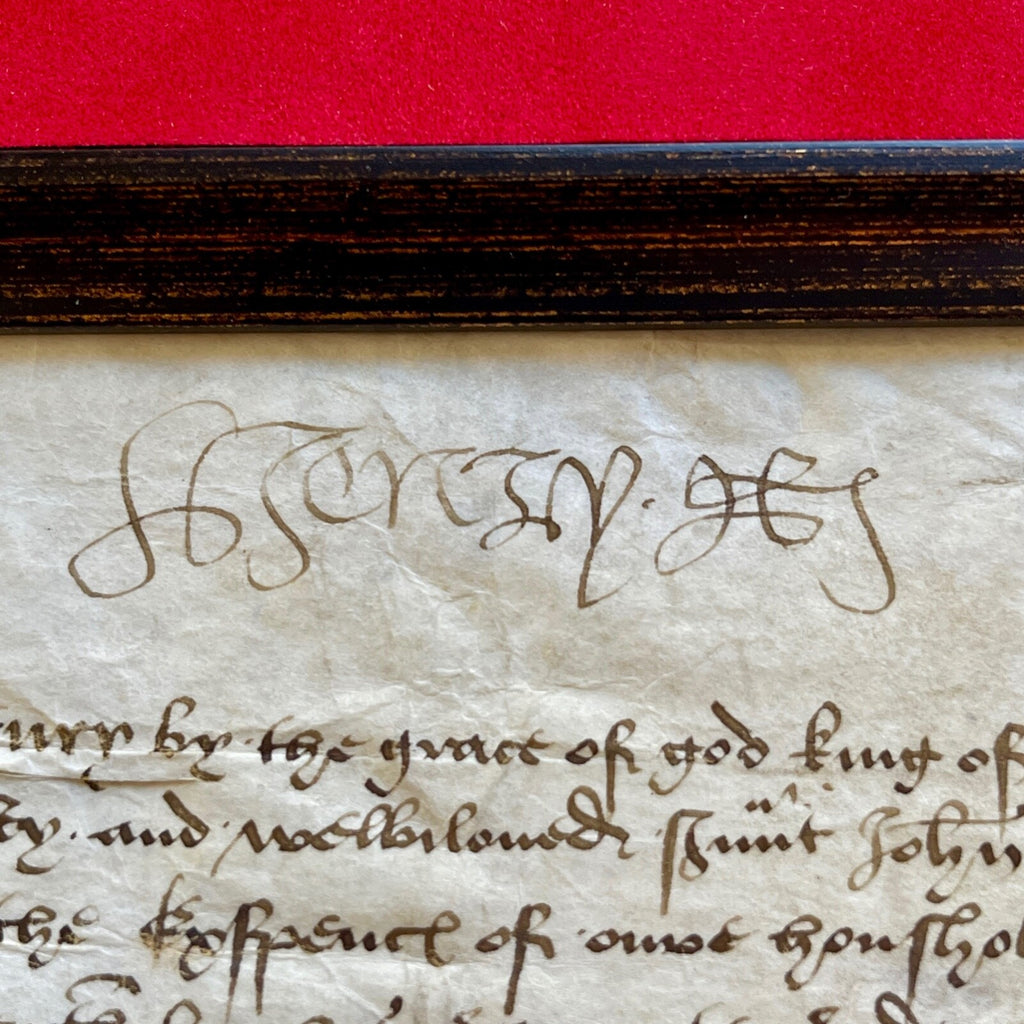 Henry R
enry by the grace of god king of
ty and welbiloued s'uunt John
the Exspences of oure houshol